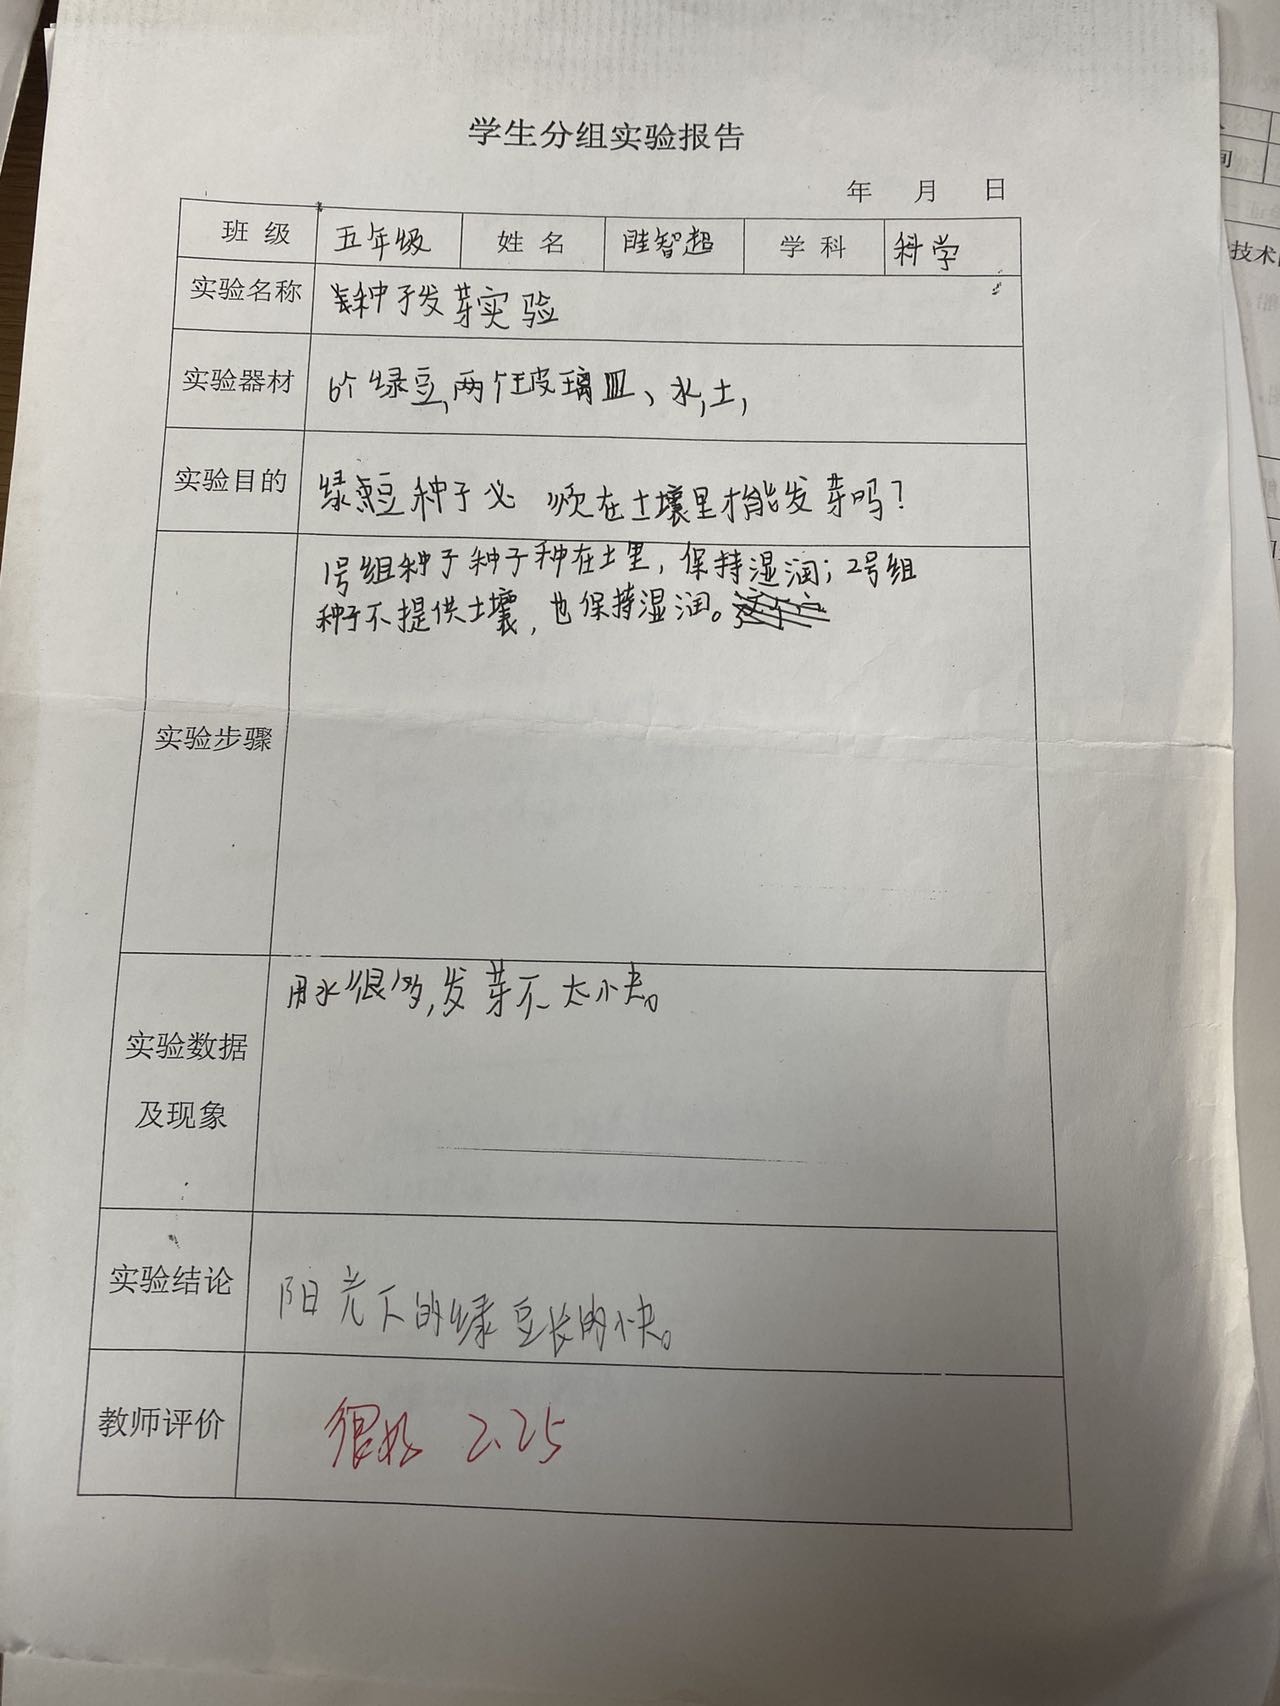 学生分组实验报告
年 月 日
班 级 五年级 姓 名 眭智超 学 科 科学
实验名称 种子发芽实验
实验器材 6个绿豆,两个玻璃皿、水,土,
实验目的 绿豆种子必须在土壤里才能发芽吗?
1号组种子种子种在土里,保持湿润;2号组
种子不提供土壤,也保持湿润。
实验步骤
用水很多,发芽不太快。
实验数据
及现象
实验结论 阳光下的绿豆长的快。
教师评价 很好 2.25
技术